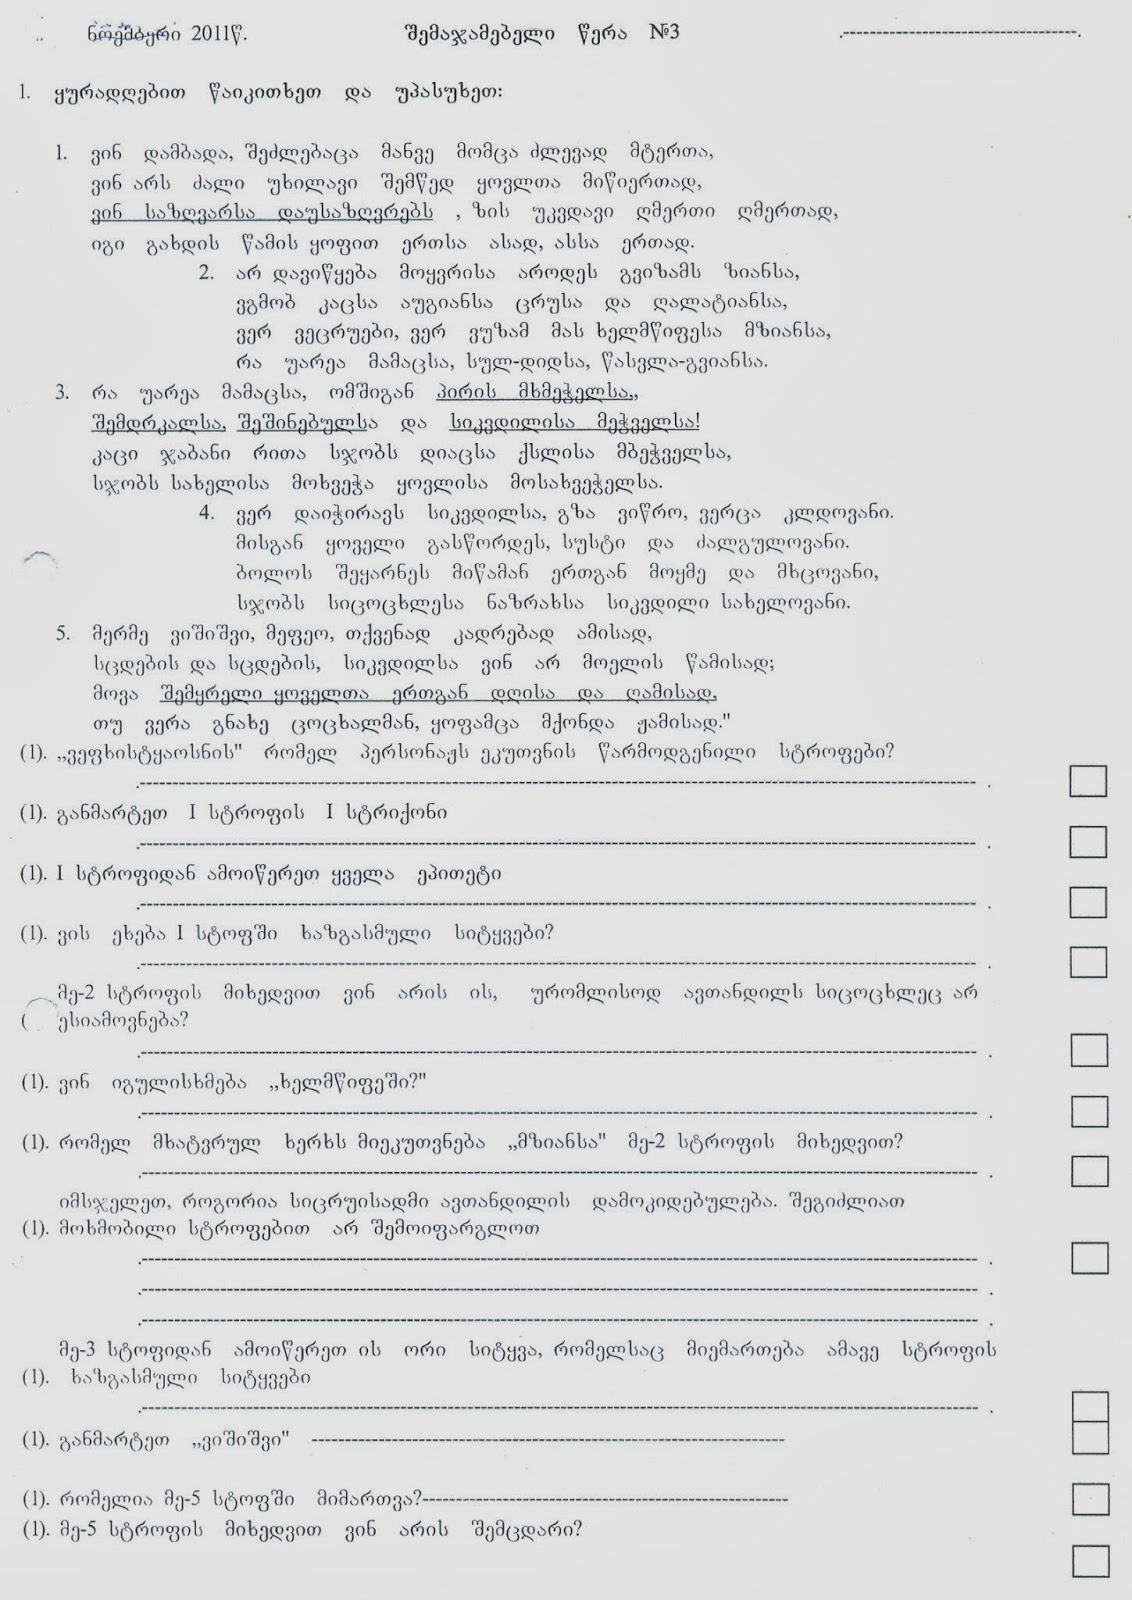 ნოემბერი 2011წ. შემაჯამებელი წერა №3
1. ყურადღებით წაიკითხეთ და უპასუხეთ:
1. ვინ დამბადა, შეძლებაცა მანვე მომცა ძლევად მტერთა,
ვინ არს ძალი უხილავი შემწედ ყოვლთა მიწიერთად,
ვინ საზღვარსა დაუსაზღვრებს , ზის უკვდავი ღმერთი ღმერთად,
იგი გახდის წამის ყოფით ერთსა ასად, ასსა ერთად.
2. არ დავიწყება მოყვრისა აროდეს გვიზამს ზიანსა,
ვგმობ კაცსა აუგიანსა ცრუსა და ღალატიანსა,
ვერ ვეცრუები, ვერ ვუზამ მას ხელმწიფესა მზიანსა,
რა უარეა მამაცსა, სულ-დიდსა, წასვლა-გვიანსა.
3. რა უარეა მამაცსა, ომშიგან პირის მხმეჭელსა,,
შემდრკალსა, შეშინებულსა და სიკვდილისა მეჭველსა!
კაცი ჯაბანი რითა სჯობს დიაცსა ქსლისა მბეჭველსა,
სჯობს სახელისა მოხვეჭა ყოვლისა მოსახვეჭელსა.
4. ვერ დაიჭირავს სიკვდილსა, გზა ვიწრო, ვერცა კლდოვანი.
მისგან ყოველი გასწორდეს, სუსტი და ძალგულოვანი.
ბოლოს შეყარნეს მიწამან ერთგან მოყმე და მხცოვანი,
სჯობს სიცოცხლესა ნაზრახსა სიკვდილი სახელოვანი.
5. მერმე ვიშიშვი, მეფეო, თქვენად კადრებად ამისად,
სცდების და სცდების, სიკვდილსა ვინ არ მოელის წამისად;
მოვა შემყრელი ყოველთა ერთგან დღისა და ღამისად,
თუ ვერა გნახე ცოცხალმან, ყოფამცა მქონდა ჟამისად."
(1). „ვეფხისტყაოსნის" რომელ პერსონაჟს ეკუთვნის წარმოდგენილი სტროფები?
(1). განმარტეთ I სტროფის I სტრიქონი
(1). I სტროფიდან ამოიწერეთ ყველა ეპითეტი
(1). ვის ეხება I სტოფში ხაზგასმული სიტყვები?
მე-2 სტროფის მიხედვით ვინ არის ის, ურომლისოდ ავთანდილს სიცოცხლეც არ
( ესიამოვნება?
(1). ვინ იგულისხმება „ხელმწიფეში?"
(1). რომელ მხატვრულ ხერხს მიეკუთვნება „მზიანსა" მე-2 სტროფის მიხედვით?
იმსჯელეთ, როგორია სიცრუისადმი ავთანდილის დამოკიდებულება. შეგიძლიათ
(1). მოხმობილი სტროფებით არ შემოიფარგლოთ
მე-3 სტოფიდან ამოიწერეთ ის ორი სიტყვა, რომელსაც მიემართება ამავე სტროფის
(1). ხაზგასმული სიტყვები
(1). განმარტეთ „ვიშიშვი"
(1). რომელია მე-5 სტოფში მიმართვა?
(1). მე-5 სტროფის მიხედვით ვინ არის შემცდარი?